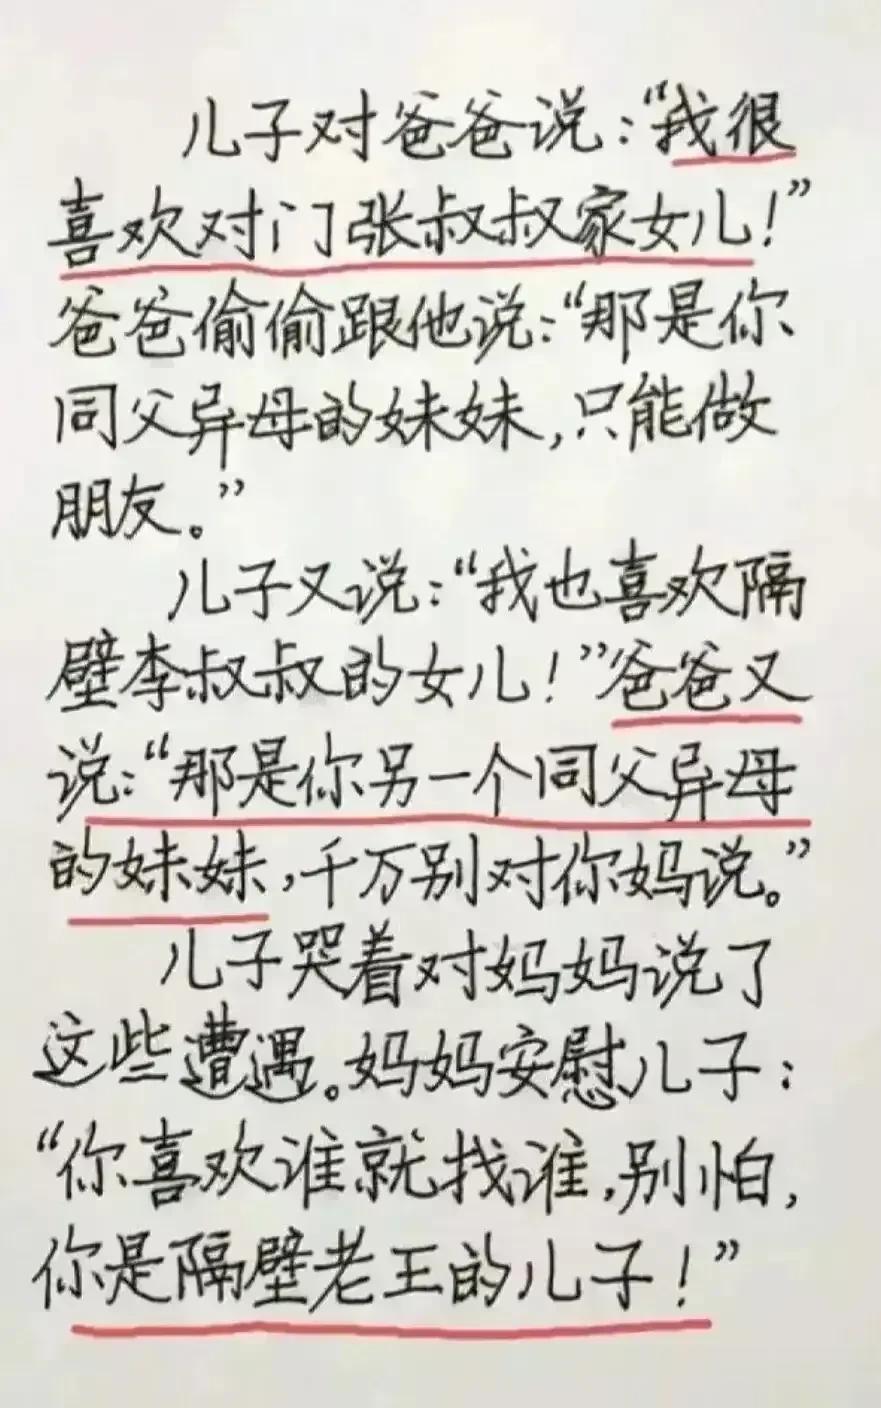 儿子对爸爸说：“我很
喜欢对门张叔叔家女儿！”
爸爸偷偷跟他说：“那是你
同父异母的妹妹，只能做
朋友。”
儿子又说：“我也喜欢隔
壁李叔叔的女儿！”爸爸又
说：“那是你另一个同父异母
的妹妹，千万别对你妈说。”
儿子哭着对妈妈说了
这些遭遇。妈妈安慰儿子：
“你喜欢谁就找谁，别怕，
你是隔壁老王的儿子！”